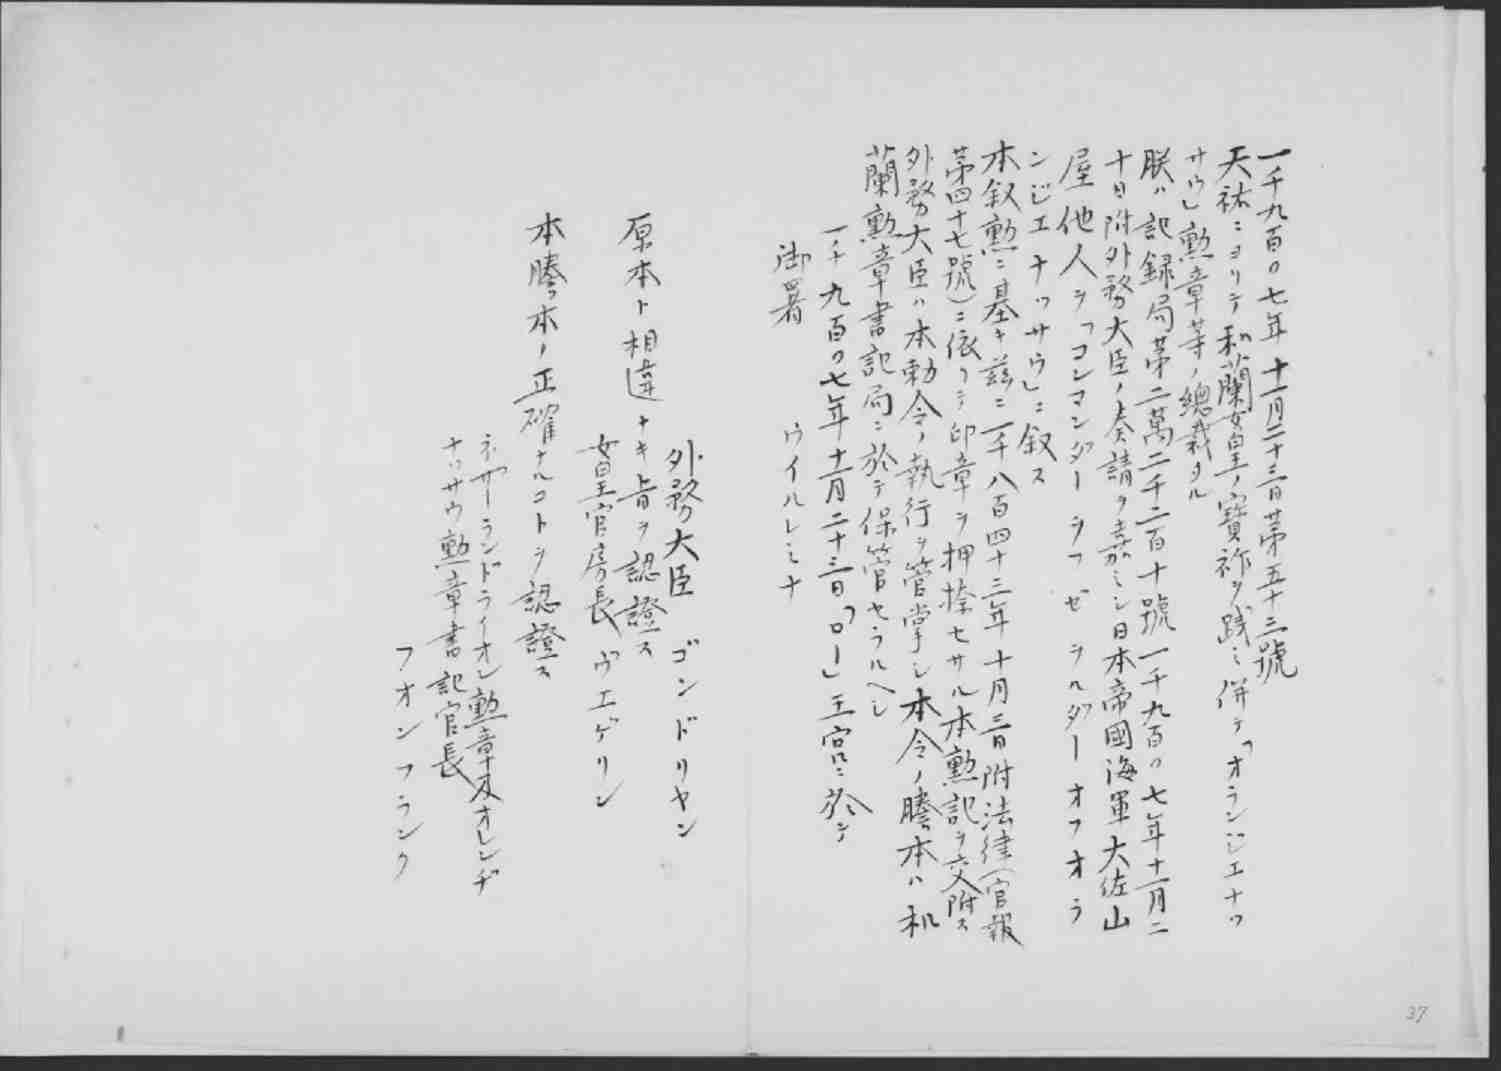 一千九百〇七年十一月二十三日第五十三號
天祐ニヨリテ和蘭女皇ノ寶祚ヲ践ミ併テ「オランジエナツ
サウ」勲章等ノ總裁タル
朕ハ記録局第二萬二千二百十號一千九百〇七年十一月二
十日附外務大臣ノ奏請ヲ嘉ミシ日本帝國海軍大佐山
屋他人ヲ「コンマンダー ヲフ ゼ ヲルダー オフ オラ
ンジエナツサウ」ニ叙ス
本叙勲ニ基キ茲ニ一千八百四十三年十月三日附法律(官報
第四十七號)ニ依リテ印章ヲ押捺セサル本勲記ヲ交附ス
外務大臣ハ本勅令ノ執行ヲ管掌シ本令ノ謄本ハ和
蘭勲章書記局ニ於テ保管セラルヘシ
一千九百〇七年十一月二十三日「ロー」王宮ニ於テ
御署 ウイルレミナ
外務大臣 ゴンドリヤン
原本ト相違ナキ旨ヲ認證ス
女皇官房長 ヴエゲリン
本謄本ノ正確ナルコトヲ認證ス
ネザーランドライオン勲章及オレンヂ
ナツサウ勲章書記官長
フオンフランク
37